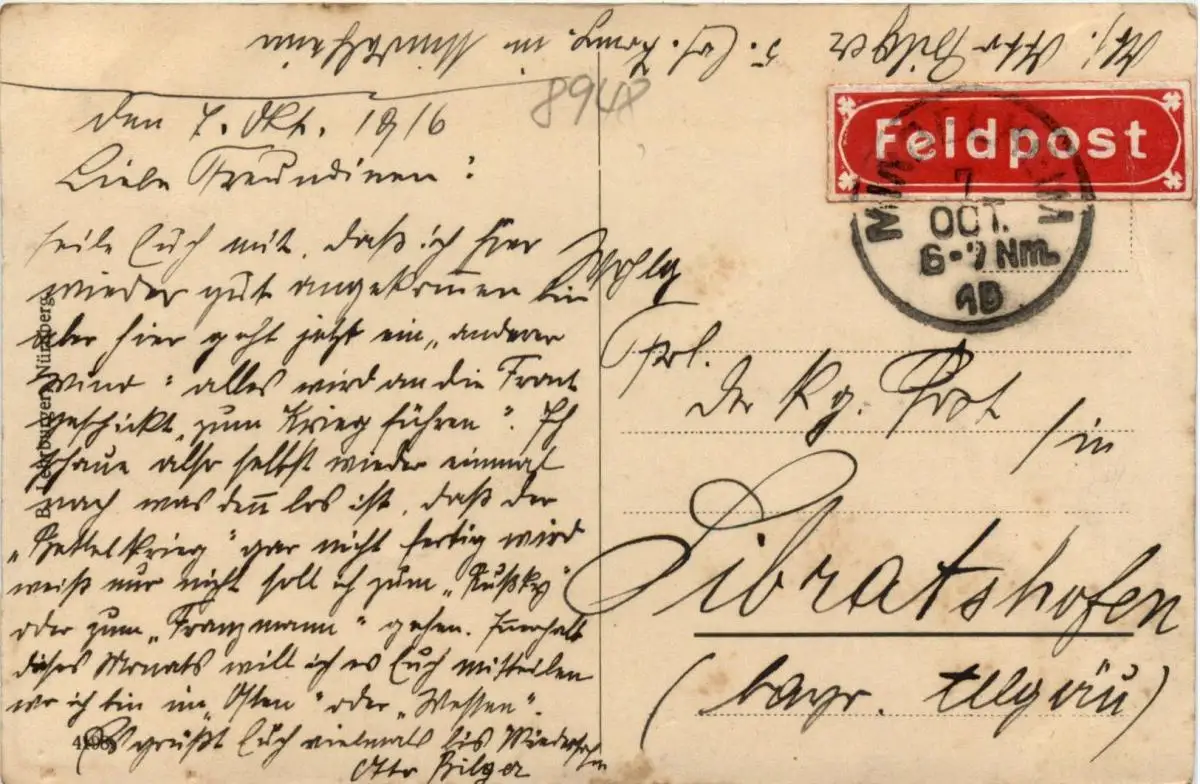 Abs. Otto Bilger 5. Ers. Komp. in Mindelheim
8948
den 7. Okt. 1916
Liebe Freundinen:
teile Euch mit, daß ich hier
wieder gut angekommen bin
aber hier geht jetzt ein „anderer
Wind": alles wird an die Front
geschickt „zum Krieg führen". Ich
schaue also selbst wieder einmal
nach was denn los ist, daß der
„Bettelkrieg" gar nicht fertig wird
weiß nur nicht soll ich zum „Rußky"
oder zum „Franzmann" gehen. Innerhalb
dieses Monats will ich es Euch mitteilen
wo ich bin im „Osten" oder „Westen".
Es grüßt Euch vielmals bis Wiedersehn
Otto Bilger
B. Lehrburger, Nürnberg
Feldpost
MINDELHEIM
7
OCT.
6-7 Nm.
16
Wohlg
Frl.
der Kg. Post
/in
Sibratshofen
(bayr. Allgäu)